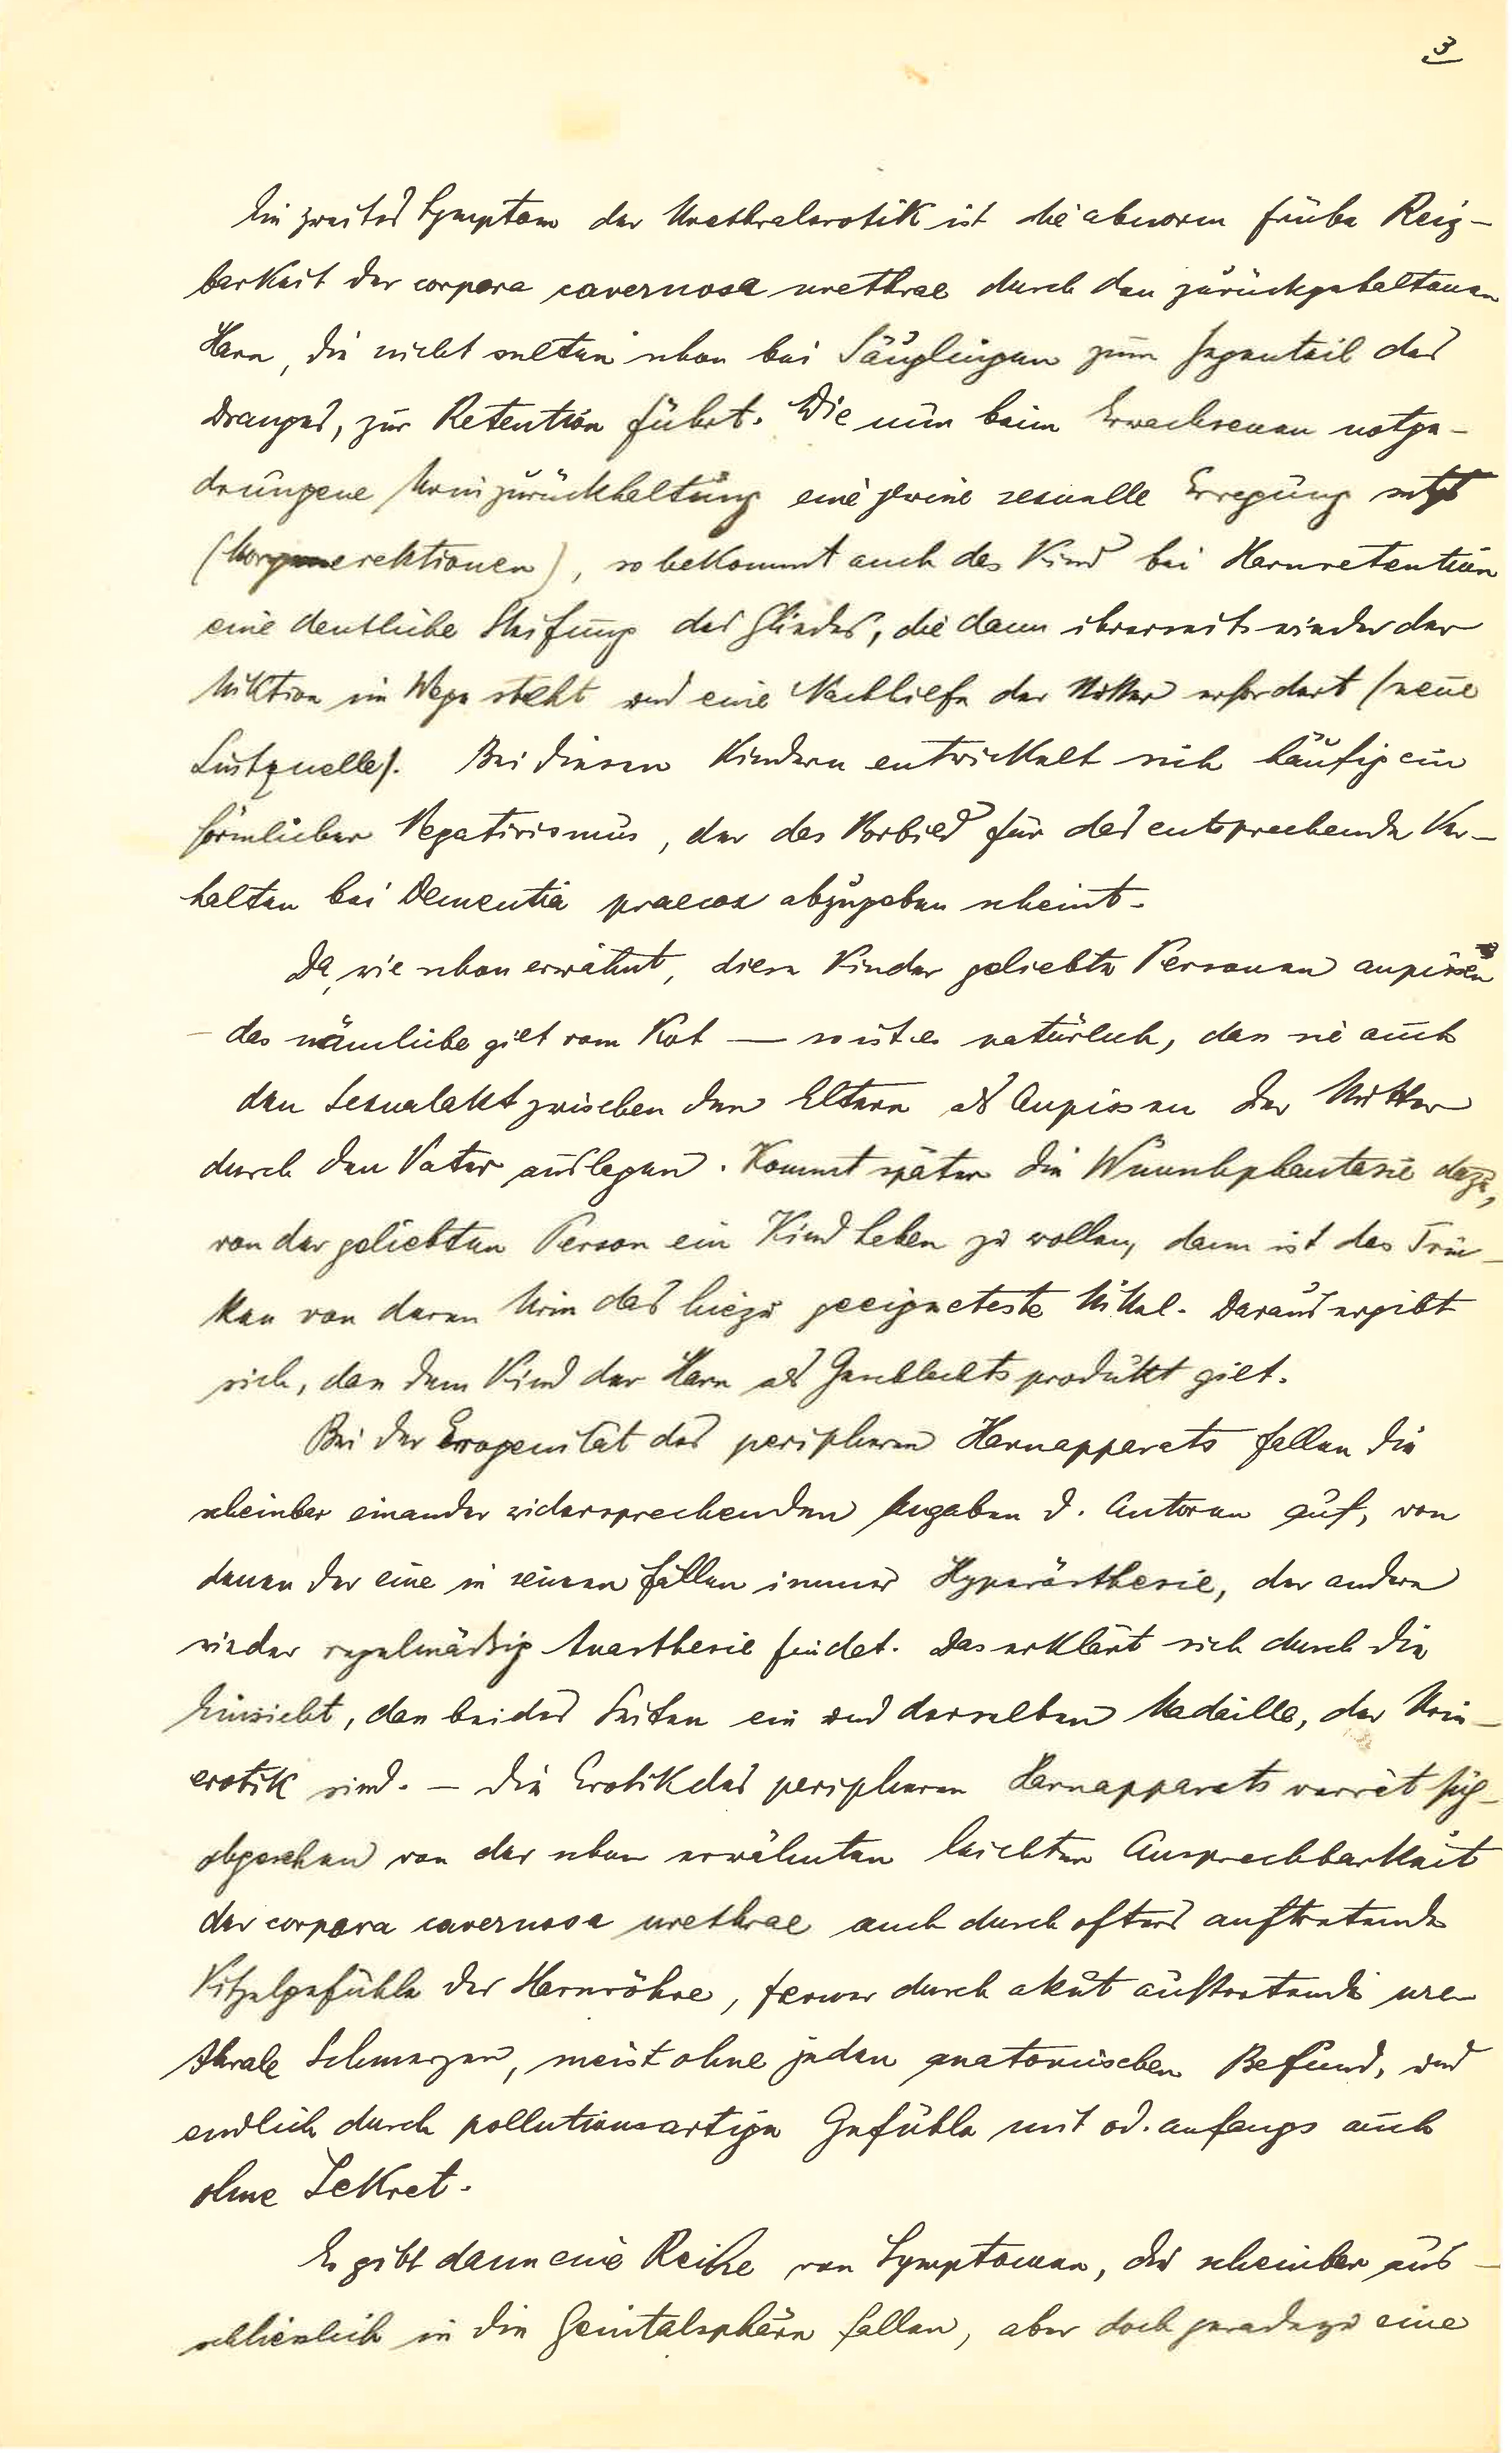 3
Ein zweites Symptom der Urethralerotik ist die abnorm frühe Reiz-
barkeit der corpora cavernosa urethrae durch den zurückgehaltenen
Harn, die nicht selten schon bei Säuglingen zum Gegenteil des
Dranges, zur Retention führt. Wie nun beim Erwachsenen notge-
drungene Urinzurückhaltung eine gewisse sexuelle Erregung setzt
(Morgenerektionen), so bekommt auch das Kind bei Harnretention
eine deutliche Steifung des Gliedes, die dann ihrerseits wieder der
Miktion im Wege steht und eine Nachhilfe der Mutter erfordert (neue
Lustquelle). Bei diesen Kindern entwickelt sich häufig ein
förmlicher Negativismus, der das Vorbild für das entsprechende Ver-
halten bei Dementia praecox abzugeben scheint.
Da, wie schon erwähnt, diese Kinder geliebte Personen anpissen
- das nämliche gilt vom Kot — so ist es natürlich, dass sie auch
den Sexualakt zwischen den Eltern als Anpissen der Mutter
durch den Vater auslegen. Kommt später die Wunschphantasie dazu,
von der geliebten Person ein Kind haben zu wollen, dann ist das Trin-
ken von deren Urin das hiezu geeigneteste Mittel. Daraus ergibt
sich, dass dem Kind der Harn als Geschlechtsprodukt gilt.
Bei der Erogenität des peripheren Harnapparats fallen die
scheinbar einander widersprechenden Angaben d. Autoren auf, von
denen der eine in seinen Fällen immer Hyperästhesie, der andere
wieder regelmäßig Anästhesie findet. Das erklärt sich durch die
Einsicht, dass beides Seiten ein und derselben Medaille, der Urin-
erotik sind. — Die Erotik des peripheren Harnapparats verrät sich
abgesehen von der schon erwähnten leichten Ansprechbarkeit
der corpora cavernosa urethrae auch durch öfters auftretende
Kitzelgefühle der Harnröhre, ferner durch akut auftretende ure-
thrale Schmerzen, meist ohne jeden anatomischen Befund, und
endlich durch pollutionsartige Gefühle mit od. anfangs auch
ohne Sekret.
Es gibt dann eine Reihe von Symptomen, die scheinbar aus-
schliesslich in die Genitalsphäre fallen, aber doch geradezu eine